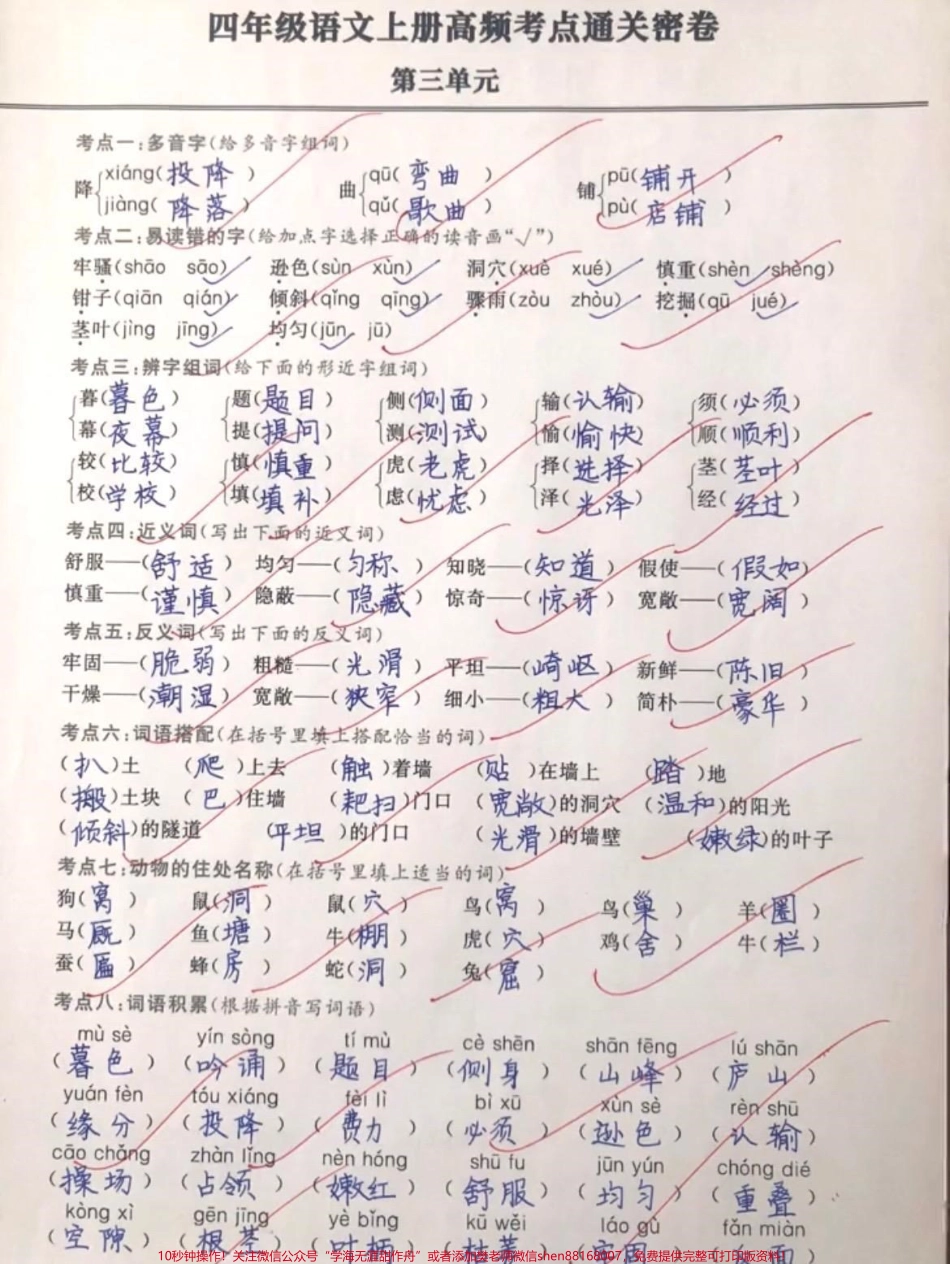 四年级语文上册高频考点通关密卷
第三单元
考点一:多音字(给多音字组词)
降 xiáng(投降) 曲 qū(弯曲) 铺 pū(铺开)
jiàng(降落) qǔ(歌曲) pù(店铺)
考点二:易读错的字(给加点字选择正确的读音画“√”)
牢骚(shāo sāo) 逊色(sùn xùn) 洞穴(xuè xué) 慎重(shèn shèng)
钳子(qiān qián) 倾斜(qǐng qīng) 骤雨(zòu zhòu) 挖掘(qū jué)
茎叶(jìng jīng) 均匀(jūn jū)
考点三:辨字组词(给下面的形近字组词)
暮(暮色) 题(题目) 侧(侧面) 输(认输) 须(必须)
幕(夜幕) 提(提问) 测(测试) 愉(愉快) 顺(顺利)
较(比较) 慎(慎重) 虎(老虎) 择(选择) 茎(茎叶)
校(学校) 填(填补) 虑(忧虑) 泽(光泽) 经(经过)
考点四:近义词(写出下面的近义词)
舒服——(舒适) 均匀——(匀称) 知晓——(知道) 假使——(假如)
慎重——(谨慎) 隐蔽——(隐藏) 惊奇——(惊讶) 宽敞——(宽阔)
考点五:反义词(写出下面的反义词)
牢固——(脆弱) 粗糙——(光滑) 平坦——(崎岖) 新鲜——(陈旧)
干燥——(潮湿) 宽敞——(狭窄) 细小——(粗大) 简朴——(豪华)
考点六:词语搭配(在括号里填上搭配恰当的词)
(扒)土 (爬)上去 (触)着墙 (贴)在墙上 (踏)地
(搬)土块 (巴)住墙 (耙扫)门口 (宽敞)的洞穴 (温和)的阳光
(倾斜)的隧道 (平坦)的门口 (光滑)的墙壁 (嫩绿)的叶子
考点七:动物的住处名称(在括号里填上适当的词)
狗(窝) 鼠(洞) 鼠(穴) 鸟(窝) 鸟(巢) 羊(圈)
马(厩) 鱼(塘) 牛(棚) 虎(穴) 鸡(舍) 牛(栏)
蚕(匾) 蜂(房) 蛇(洞) 兔(窟)
考点八:词语积累(根据拼音写词语)
mù sè yín sòng tí mù cè shēn shān fēng lú shān
(暮色) (吟诵) (题目) (侧身) (山峰) (庐山)
yuán fèn tóu xiáng fèi lì bì xū xùn sè rèn shū
(缘分) (投降) (费力) (必须) (逊色) (认输)
cāo chǎng zhàn lǐng nèn hóng shū fu jūn yún chóng dié
(操场) (占领) (嫩红) (舒服) (均匀) (重叠)
kòng xì gēn jīng yè bǐng kū wěi láo gù fǎn miàn
(空隙)
10秒钟操作！关注微信公众号“学海无涯甜作舟”